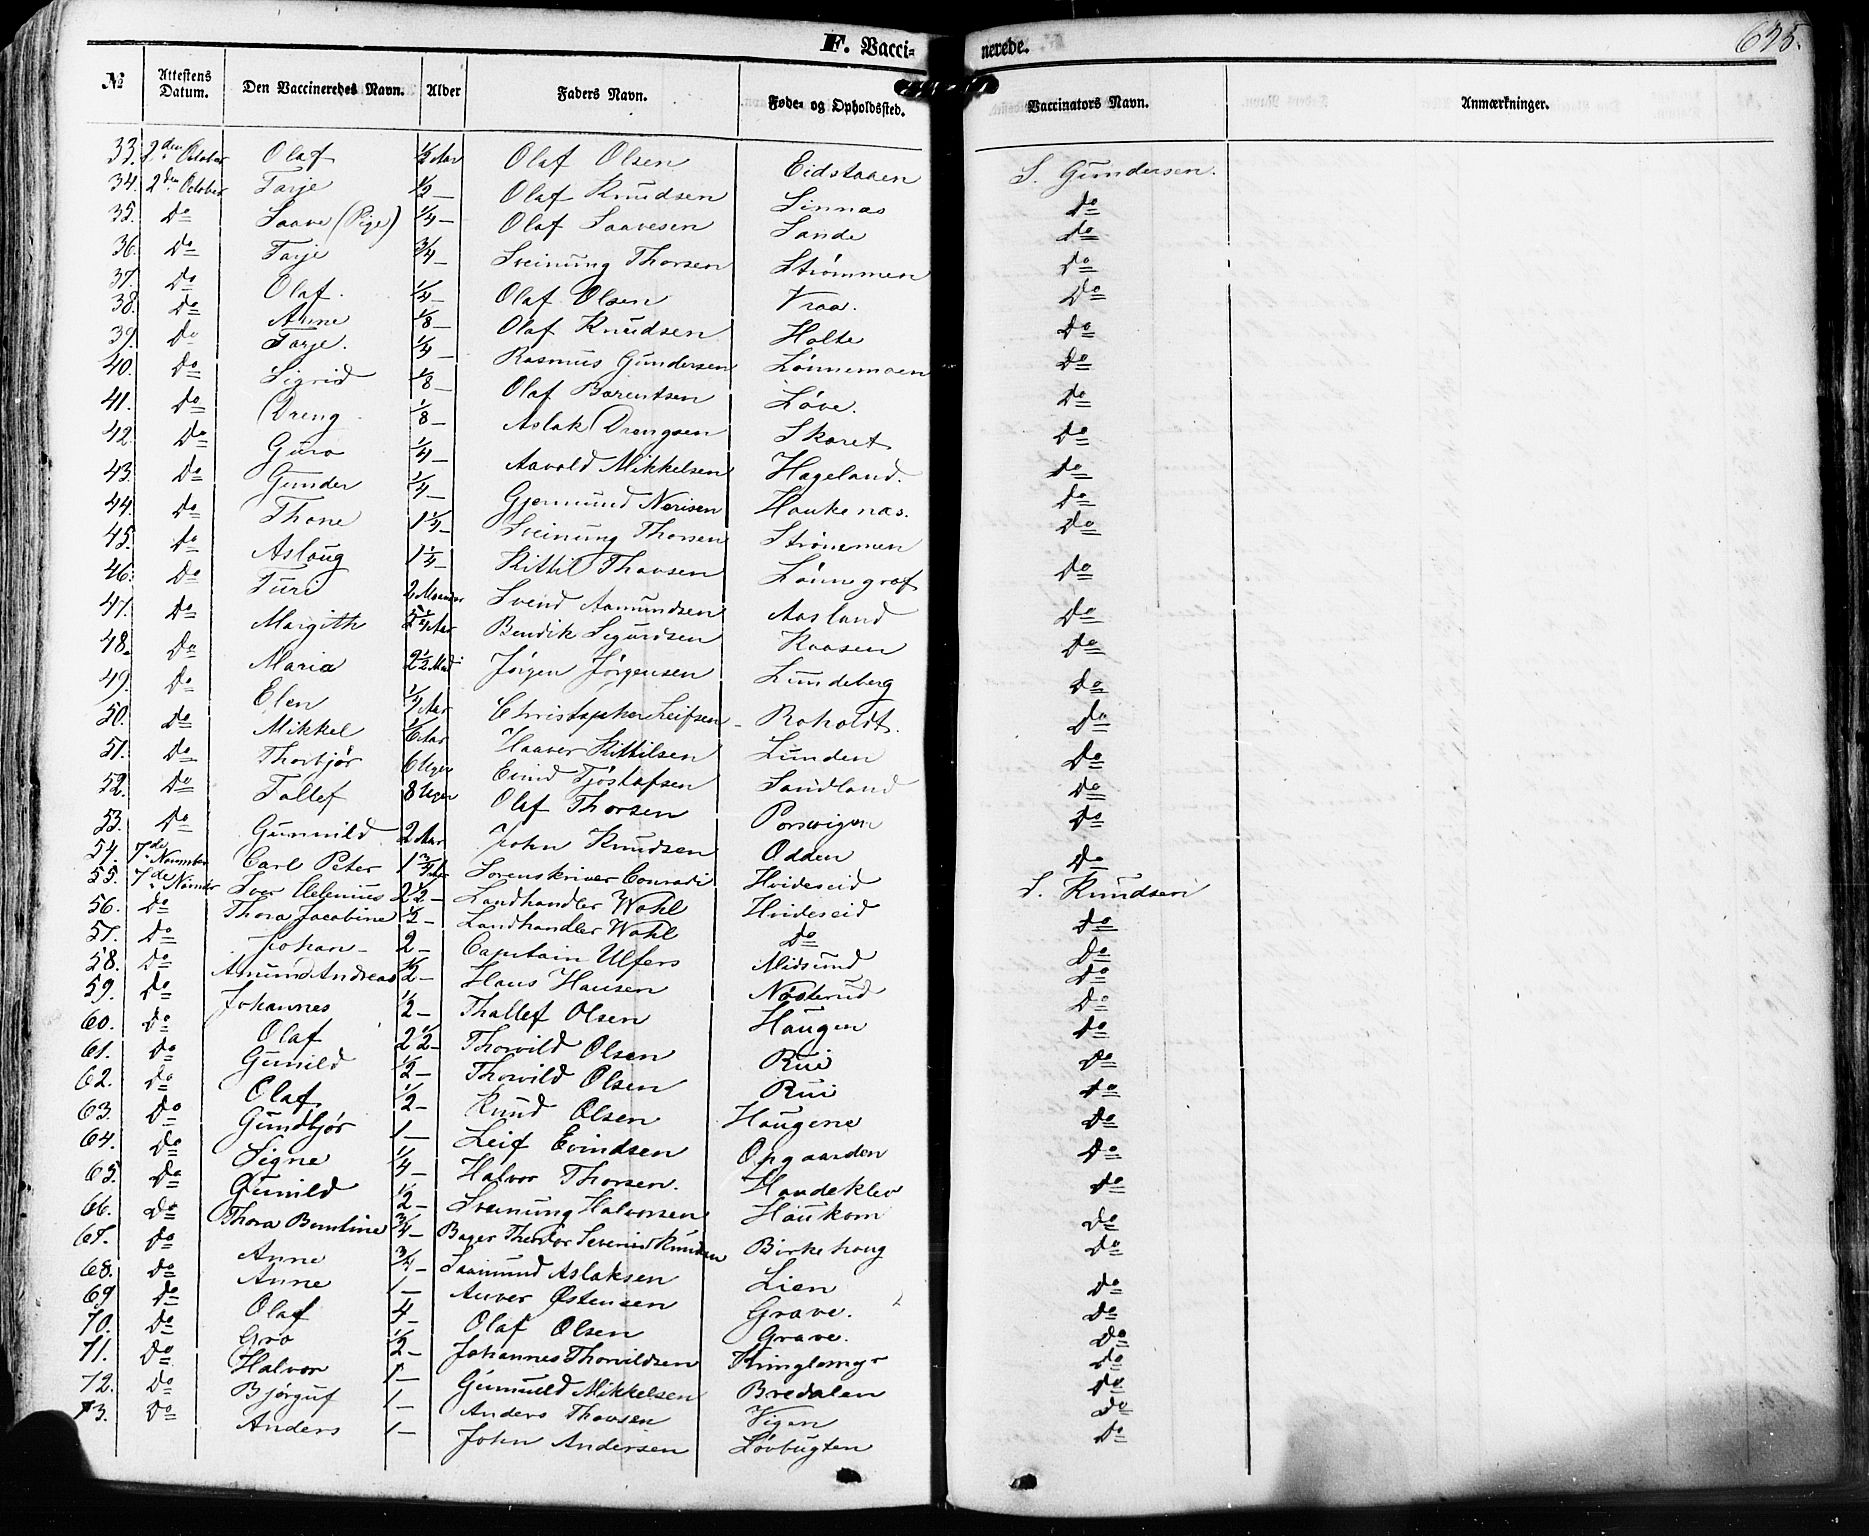 F. Vaccinerede. 635.
№ | Attestens Datum. | Den Vaccineredes Navn. | Alder | Faders Navn. | Føde- og Opholdssted. | Vaccinators Navn. | Anmærkninger.
33. 2den October Olaf 1/2 Aar Olaf Olsen Eidstaaen S. Gundersen.
34. 2den October Tarje 1/2 – Olaf Knudsen Sinnas Do
35. Do Saave (Pige) 1/4 – Olaf Saavesen Sande Do
36. Do Tarje 3/4 – Sveinung Thorsen Strømmen Do
37. Do Olaf. 1/4 – Olaf Olsen Vraa. Do
38. Do Anne 1/8 – Olaf Knudsen Holte Do
39. Do Tarje. 1/4 – Rasmus Gundersen Lønnemoen Do
40. Do Sigrid 1/8 – Olaf Barentsen Løve. Do
41. Do Dreng 1/8 – Aslak Drengsen Skaret Do
42. Do Guro 1/4 – Aavold Mikkelsen Hageland. Do
43. Do Gunder 1/4 – Gjermund Nerisen Haukenas. Do
44. Do Thone 1 1/4 – Sveinung Thorsen Strømmen Do
45. Do Aslaug 1 1/4 – Kittil Thovsen Lønnegraf Do
46. Do Ture 2 Maaneder Svend Aamundsen Aasland Do
47. Do Margith Aar Bendik Sigurdsen Raasen Do
48. Do Maria 2 1/2 Jørgen Jørgensen Lundeberg Do
49. Do Elen 1/4 Aar Christopher Leifsen Roholdt. Do
50. Do Mikkel 1/6 Aar Haaver Kittilsen Lunden Do
51. Do Thorbjør 6 Uger Evind Tjøstafsen Sandland Do
52. Do Tallef 8 Uger Olaf Thorsen Porsvigen Do
53. Do Gunnild 2 Aar John Knudsen Odden Do
54. 7de November Carl Peter 1 3/4 Sorenskriver Conradi Hvideseid S. Knudsen
55. 7de Iver 2 1/2 – Landhandler Wahl Hvideseid Do
56. Do Thora Jacobine 1/2 – Landhandler Wahl Do Do
57. Do Johan – 2 – Capitain Ulfers Midsund Do
58. Do Amund Andreas 1/2 – Hans Hansen Nøsterud Do
59. Do Johannes 1/2 – Thallef Olsen Haugen Do
60. Do Olaf 2 1/2 – Thorvild Olsen Rui Do
61. Do Gunild 1/2 – Thorvild Olsen Rui Do
62. Do Olaf 1/2 – Knud Olsen Haugene Do
63. Do Gundbjør 1 – Leif Evindsen Opgaarden Do
64. Do Signe 1/4 – Halvor Thorsen. Handeklev Do
65. Do Gunild 1/2 – Sveinung Halvorsen Haukom Do
66. Do Thora Bentine 3/4 – Bager Theodor Severin Knudsen Birkehaug Do
67. Do Anne 3/4 – Saamund Aslaksen Lien Do
68. Do Anne 1 – Anver Østensen Grave. Do
69 Do Olaf 4 – Olaf Olsen Grave. Do
70. Do Gro 1/2 – Johannes Thorvildsen Kringlemyr Do
71. Do Halvor 1 – Gunuld Mikkelsen Bredalen Do
72. Do Bjørguf 1 – Anders Thovsen Vigen Do
73. Do Anders 1 – John Andersen Løvbugten Do